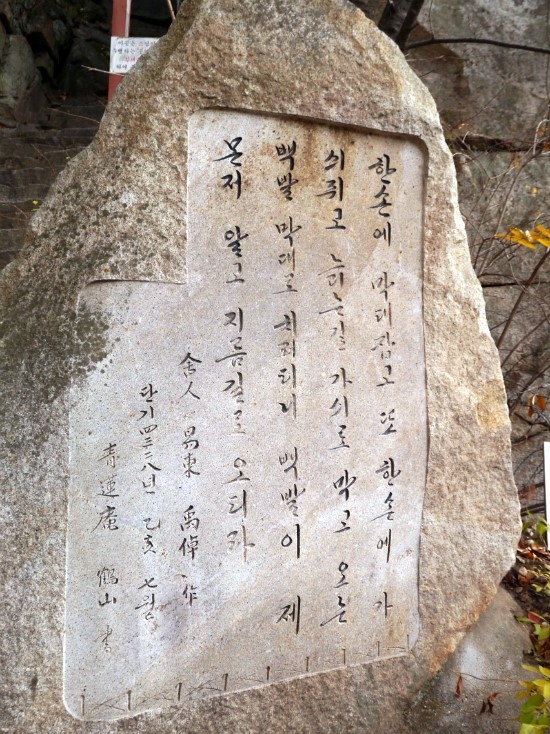 한손에 막대잡고 또 한손에 가
싀쥐고 늙는길 가싀로 막고 오는
백발 막대로 치려터니 백발이 제
몬저 알고 지름길로 오더라
舍人 易東 禹倬 作
단기四三二八년 乙亥 七월
青蓮庵 鶴山 書
이곳은